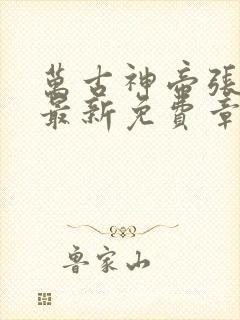 萬古神帝張
最新免費章
魯家山